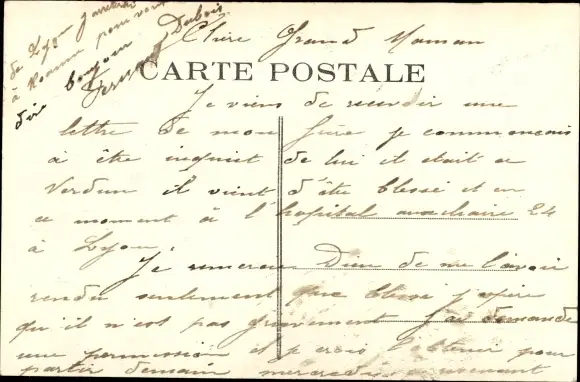 Chère Grand Maman
CARTE POSTALE
Je viens de recevoir une
lettre de mon frère je commencais
à être inquiet de lui il etait a
Verdun il vient d'être blessé et en
ce moment à l'hopital auxiliaire 24
à Lyon.
Je remercie Dieu de me l'avoir
rendu seulement que blessé j'espère
qu'il n'est pas grievement J'ai demandé
une permission et je crois l'obtenir pour
partir demain mercredi
de Lyon
à Roanne pour vous
dire bonjour
Dubois